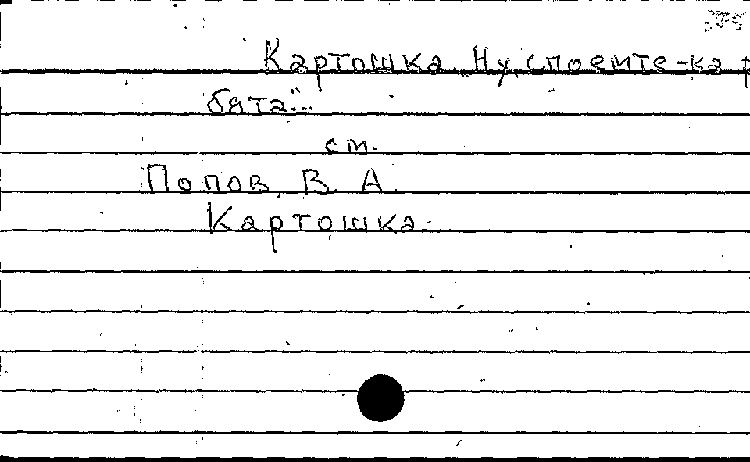 Картошка „Ну, споемте-ка р
бята"...
см.
Попов, В. А.
Картошка.